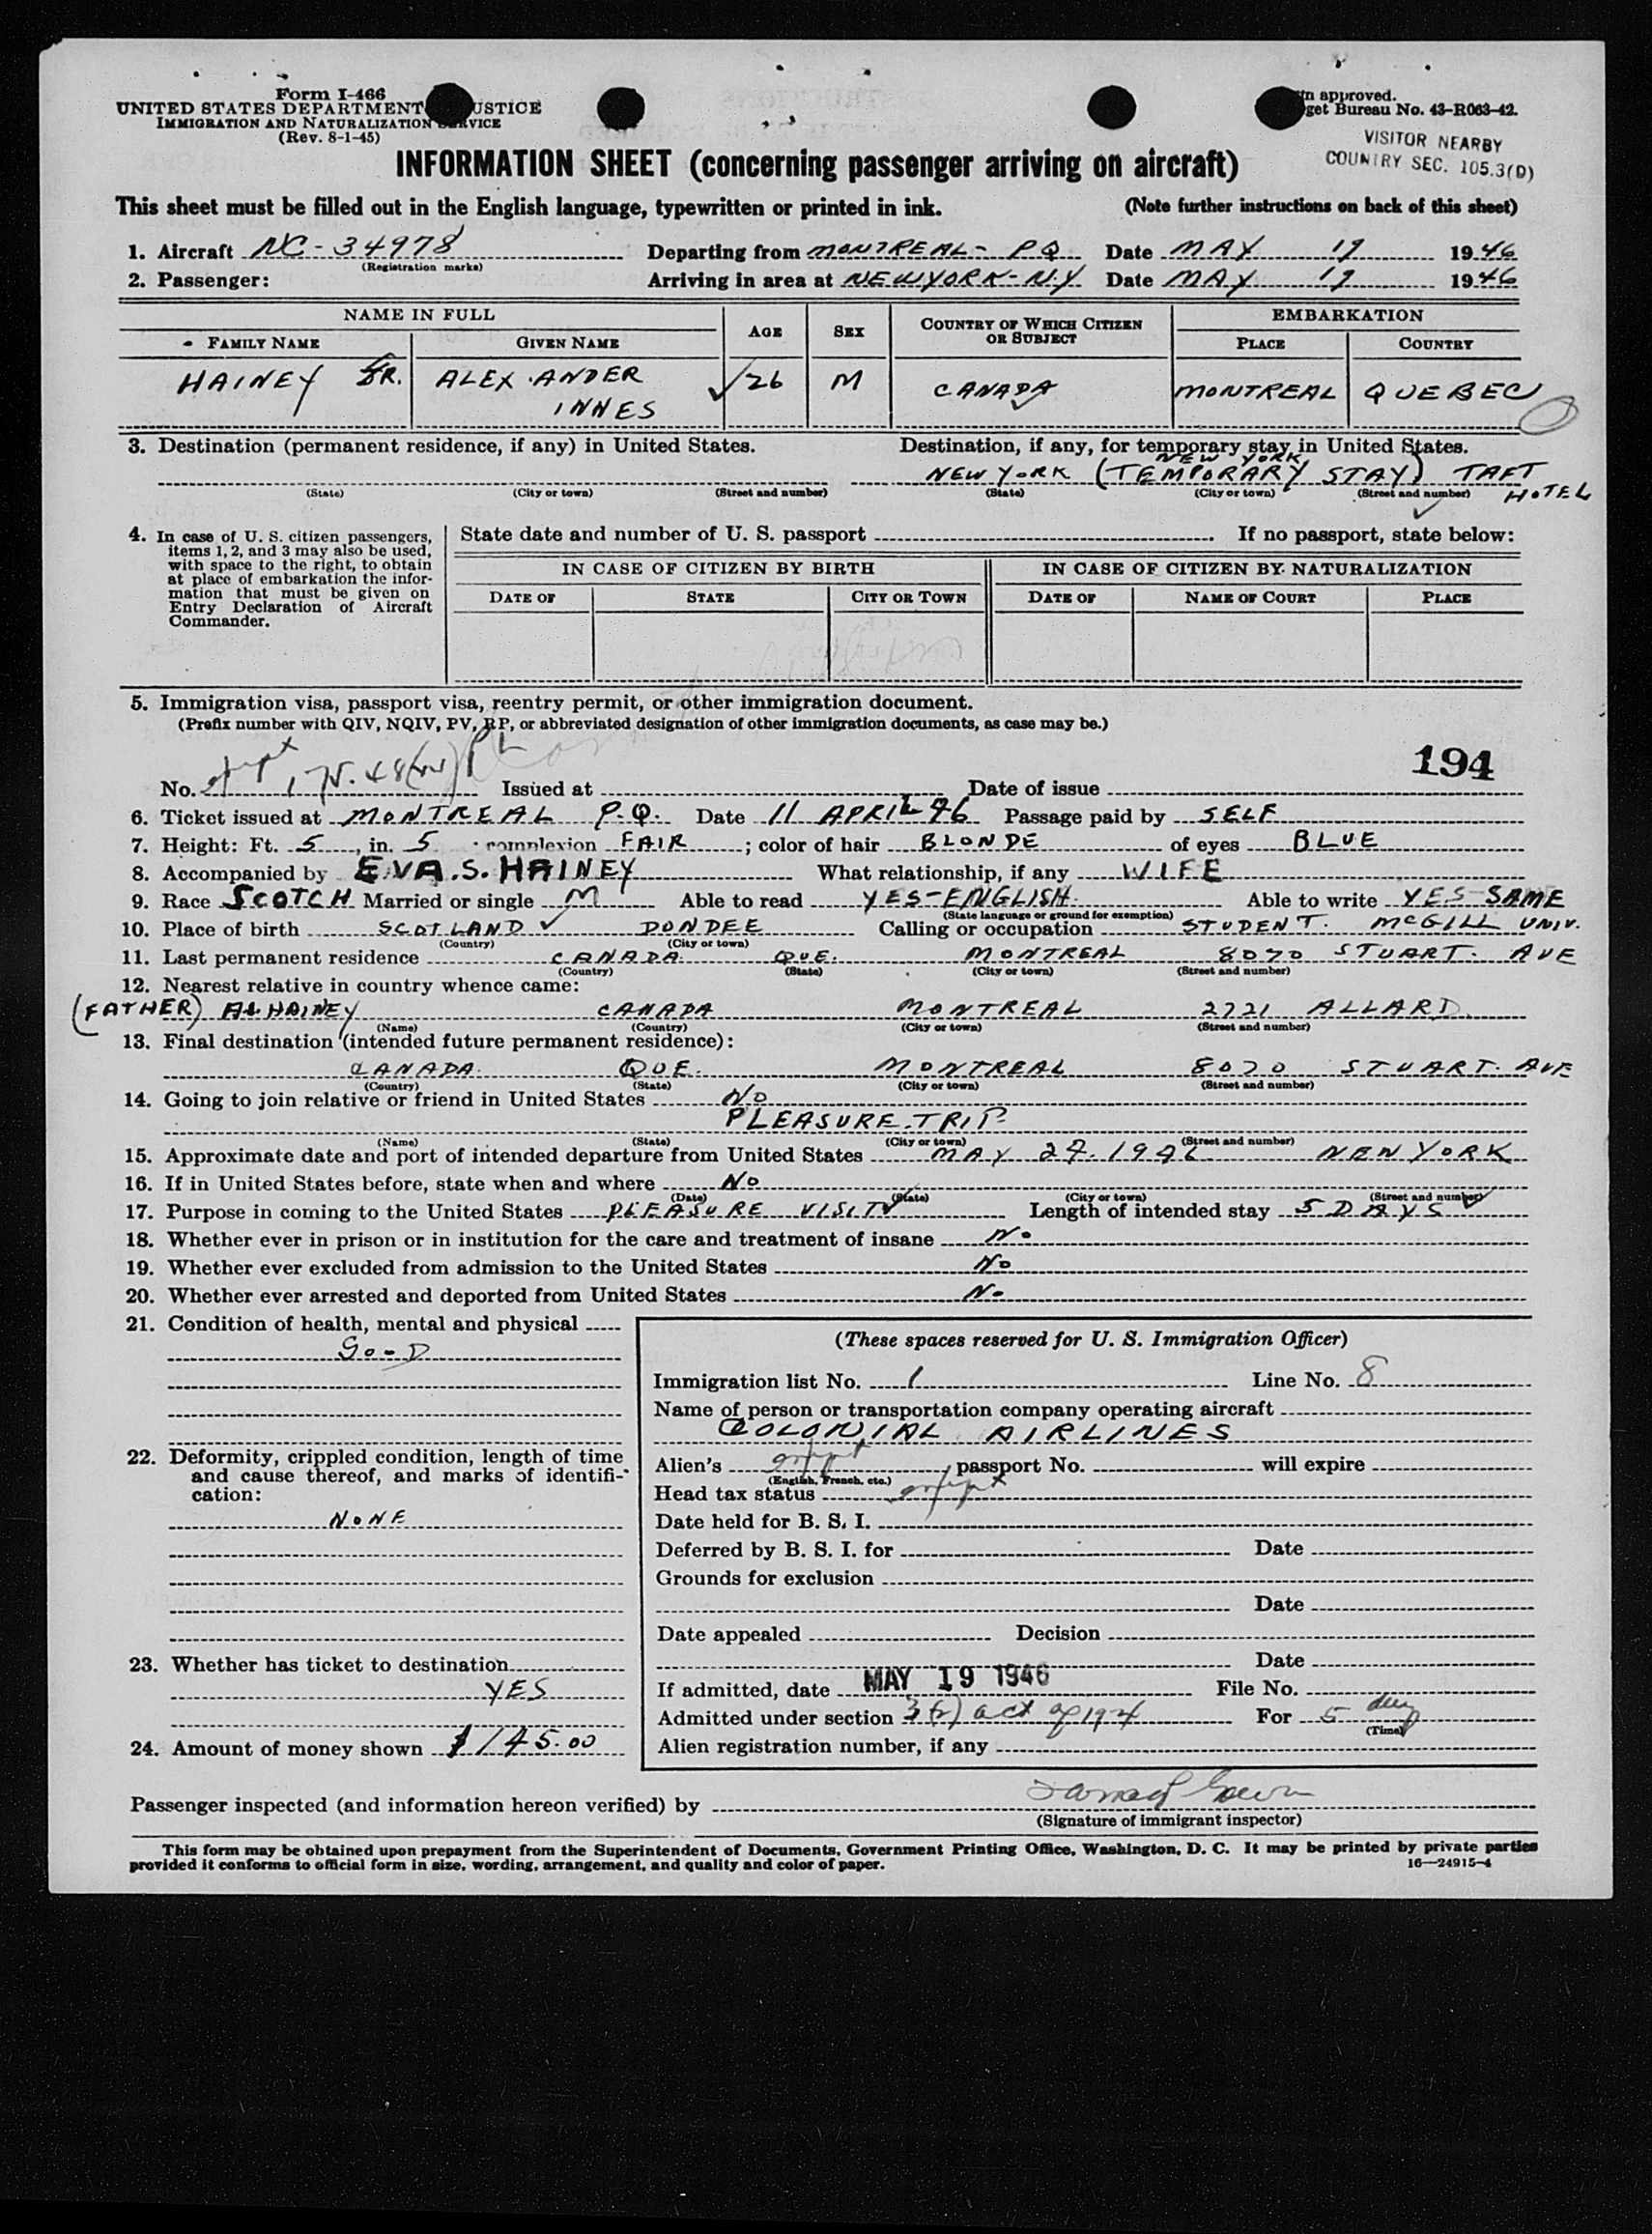 Form I-466
UNITED STATES DEPARTMENT JUSTICE
IMMIGRATION AND NATURALIZATION SERVICE
(Rev. 8-1-45)
approved.
get Bureau No. 43-R063-42.
VISITOR NEARBY
COUNTRY SEC. 105.3(D)
INFORMATION SHEET (concerning passenger arriving on aircraft)
This sheet must be filled out in the English language, typewritten or printed in ink. (Note further instructions on back of this sheet)
1. Aircraft NC-34978 Departing from MONTREAL - PQ Date MAY 19 1946
(Registration marks)
2. Passenger: Arriving in area at NEWYORK-N.Y Date MAY 19 1946
NAME IN FULL AGE SEX COUNTRY OF WHICH CITIZEN OR SUBJECT EMBARKATION
FAMILY NAME GIVEN NAME PLACE COUNTRY
HAINEY ALEX.ANDER 26 M CANADA MONTREAL QUEBEC
INNES
3. Destination (permanent residence, if any) in United States. Destination, if any, for temporary stay in United States.
NEW YORK
NEW YORK (TEMPORARY STAY) TAFT
HOTEL
(State) (City or town) (Street and number) (State) (City or town) (Street and number)
4. In case of U. S. citizen passengers, items 1, 2, and 3 may also be used, with space to the right, to obtain at place of embarkation the information that must be given on Entry Declaration of Aircraft Commander.
State date and number of U. S. passport If no passport, state below:
IN CASE OF CITIZEN BY BIRTH IN CASE OF CITIZEN BY NATURALIZATION
DATE OF STATE CITY OR TOWN DATE OF NAME OF COURT PLACE
5. Immigration visa, passport visa, reentry permit, or other immigration document.
(Prefix number with QIV, NQIV, PV, RP, or abbreviated designation of other immigration documents, as case may be.)
194
No. Issued at Date of issue
6. Ticket issued at MONTREAL P.Q. Date 11 APRIL 46 Passage paid by SELF
7. Height: Ft. 5, in. 5; complexion FAIR; color of hair BLONDE of eyes BLUE
8. Accompanied by EVA.S.HAINEY What relationship, if any WIFE
9. Race SCOTCH Married or single M Able to read YES-ENGLISH. Able to write YES SAME
(State language or ground for exemption)
10. Place of birth SCOTLAND DONDEE Calling or occupation STUDENT. McGILL UNIV.
(Country) (City or town)
11. Last permanent residence CANADA. QUE. MONTREAL 8070 STUART. AVE
(Country) (State) (City or town) (Street and number)
12. Nearest relative in country whence came:
(FATHER) HAINEY CANADA MONTREAL 2721 ALLARD
(Name) (Country) (City or town) (Street and number)
13. Final destination (intended future permanent residence):
CANADA. QUE. MONTREAL 8070 STUART. AVE
(Country) (State) (City or town) (Street and number)
14. Going to join relative or friend in United States NO
PLEASURE.TRIP
(Name) (State) (City or town) (Street and number)
15. Approximate date and port of intended departure from United States MAY 24.1946 NEW YORK
16. If in United States before, state when and where NO
(Date) (State) (City or town) (Street and number)
17. Purpose in coming to the United States PLEASURE VISIT Length of intended stay 5 DAYS
18. Whether ever in prison or in institution for the care and treatment of insane NO
19. Whether ever excluded from admission to the United States NO
20. Whether ever arrested and deported from United States NO
21. Condition of health, mental and physical
GOOD
22. Deformity, crippled condition, length of time and cause thereof, and marks of identification:
NONE
23. Whether has ticket to destination
YES
24. Amount of money shown $145.00
(These spaces reserved for U. S. Immigration Officer)
Immigration list No. 1 Line No. 8
Name of person or transportation company operating aircraft
COLONIAL AIRLINES
Alien's exempt passport No. will expire
(English, French, etc.)
Head tax status exempt
Date held for B. S. I.
Deferred by B. S. I. for Date
Grounds for exclusion
Date
Date appealed Decision
Date
If admitted, date MAY 19 1946 File No.
Admitted under section 3(2) act of 1924 For 5 days
(Time)
Alien registration number, if any
Passenger inspected (and information hereon verified) by
(Signature of immigrant inspector)
This form may be obtained upon prepayment from the Superintendent of Documents, Government Printing Office, Washington, D. C. It may be printed by private parties
provided it conforms to official form in size, wording, arrangement, and quality and color of paper. 16—24915-4